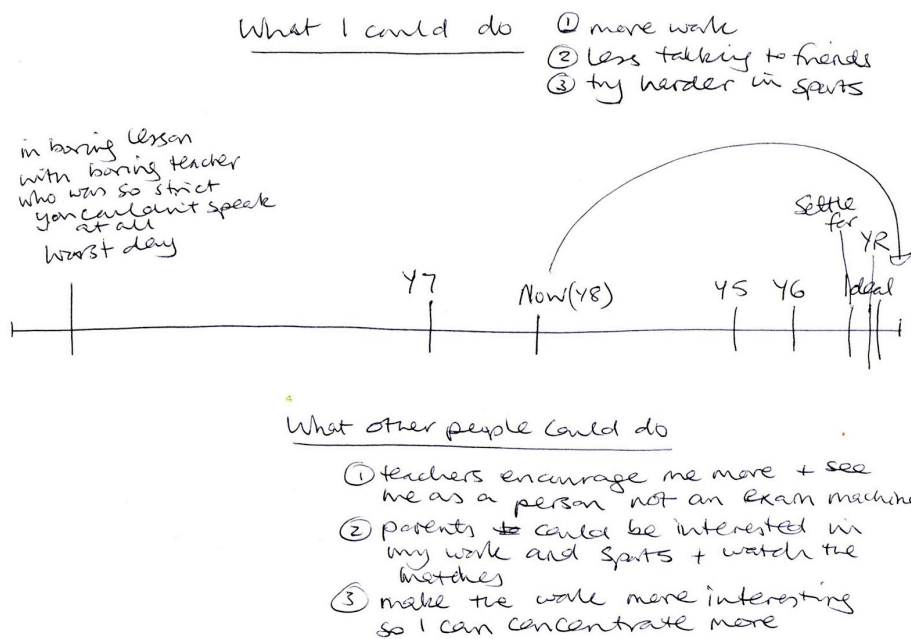 What I could do
① more work
② less talking to friends
③ try harder in sports
in boring lesson
with boring teacher
who was so strict
you couldn't speak
at all
worst day
Y7
Now (Y8)
Y5
Y6
Settle
for
Ideal
YR
What other people could do
① teachers encourage me more + see
me as a person not an exam machine
② parents could be interested in
my work and sports + watch the
matches
③ make the work more interesting
so I can concentrate more